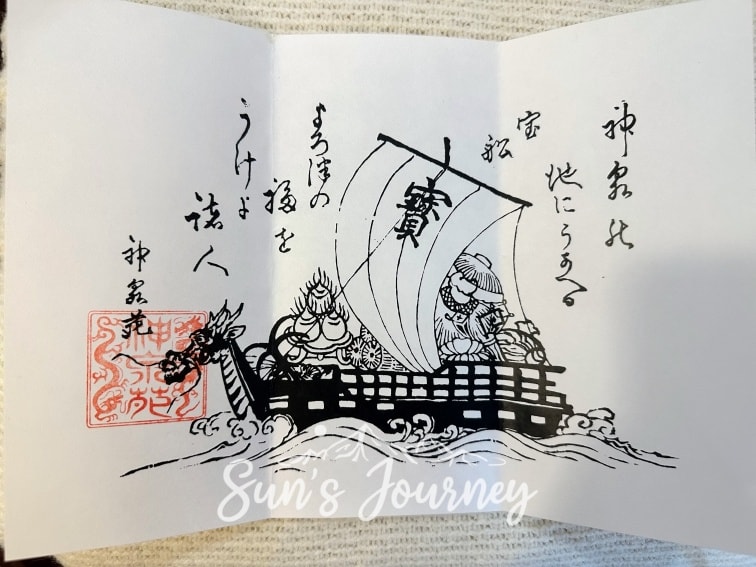 神泉の
池にうかへる
宝船
寶
よろつの
福を
うけよ
諸人
神泉苑
神泉苑
Sun's Journey